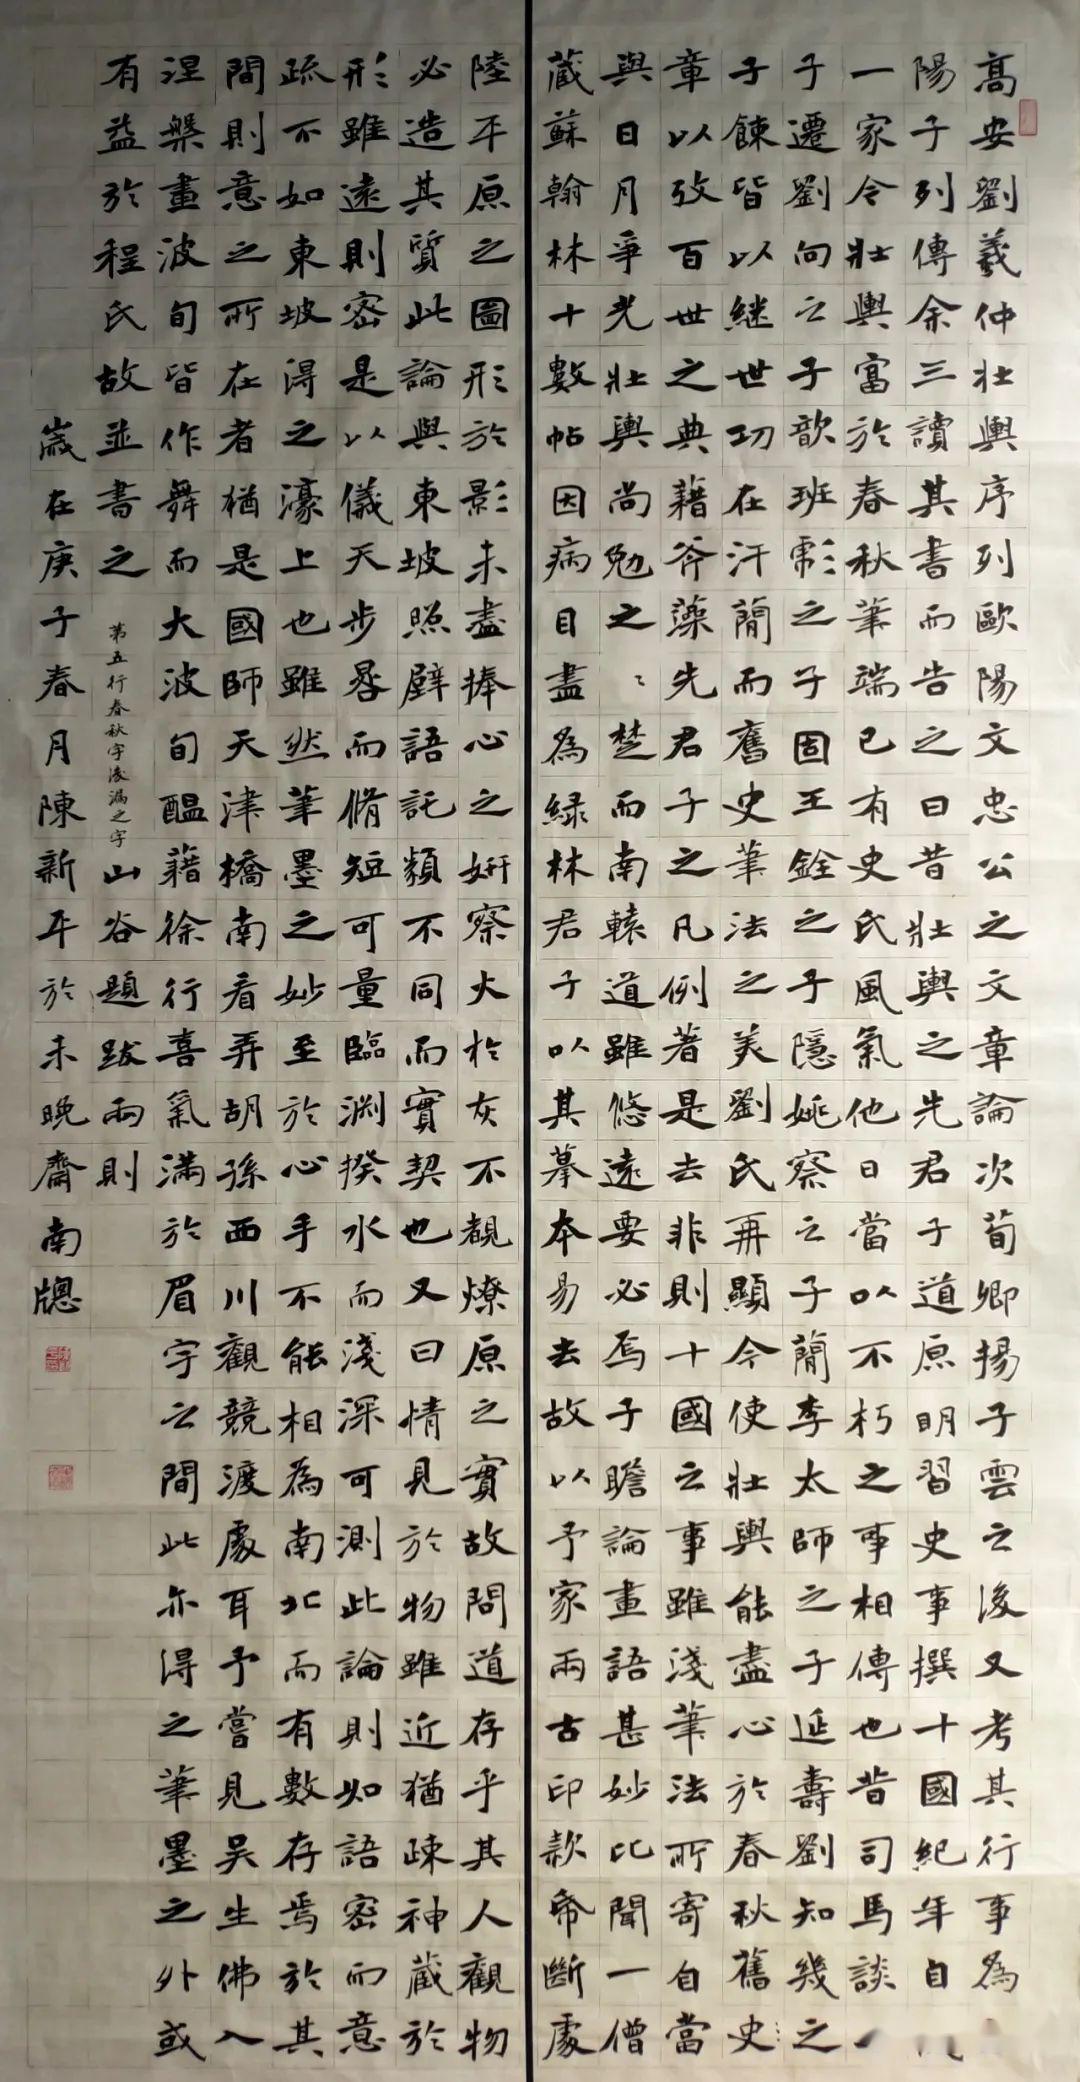 高安劉羲仲壯輿序列歐陽文忠公之文章論次荀卿揚子雲之後又考其行事為
陽子列傳余三讀其書而告之曰昔壯輿之先君子道原明習史事撰十國紀年自
一家令壯輿富於春秋筆端已有史氏風氣他日當以不朽之事相傳也昔司馬談
子遷劉向之子歆班彪之子固王銓之子隱姚察之子簡李太師之子延壽劉知幾之
子餗皆以繼世功在汗簡而舊史筆法之美劉氏再顯今使壯輿能盡心於春秋舊史
章以攷百世之典籍斧藻先君子之凡例著是去非則十國之事雖淺筆法所寄自當
與日月爭光壯輿尚勉之〻楚而南轅道雖悠遠要必焉子瞻論畫語甚妙比聞一僧
藏蘇翰林十數帖因病目盡為綠林君子以其摹本易去故以予家兩古印款帋斷處
陸平原之圖形於影未盡捧心之妍察火於灰不覩燎原之實故問道存乎其人觀物
必造其質此論與東坡照壁語託類不同而實契也又曰情見於物雖近猶疎神藏於
形雖遠則密是以儀天步晷而脩短可量臨淵揆水而淺深可測此論則如語密而意
疏不如東坡得之濠上也雖然筆墨之妙至於心手不能相為南北而有數存焉於其
間則意之所在者猶是國師天津橋南看弄胡孫西川觀競渡處耳予嘗見吳生佛入
涅槃畫波旬皆作舞而大波旬醞藉徐行喜氣滿於眉宇之間此亦得之筆墨之外或
有益於程氏故並書之 第五行春秋字後漏之字 山谷題跋兩則
歲在庚子春月陳新平於未晚齋南牕